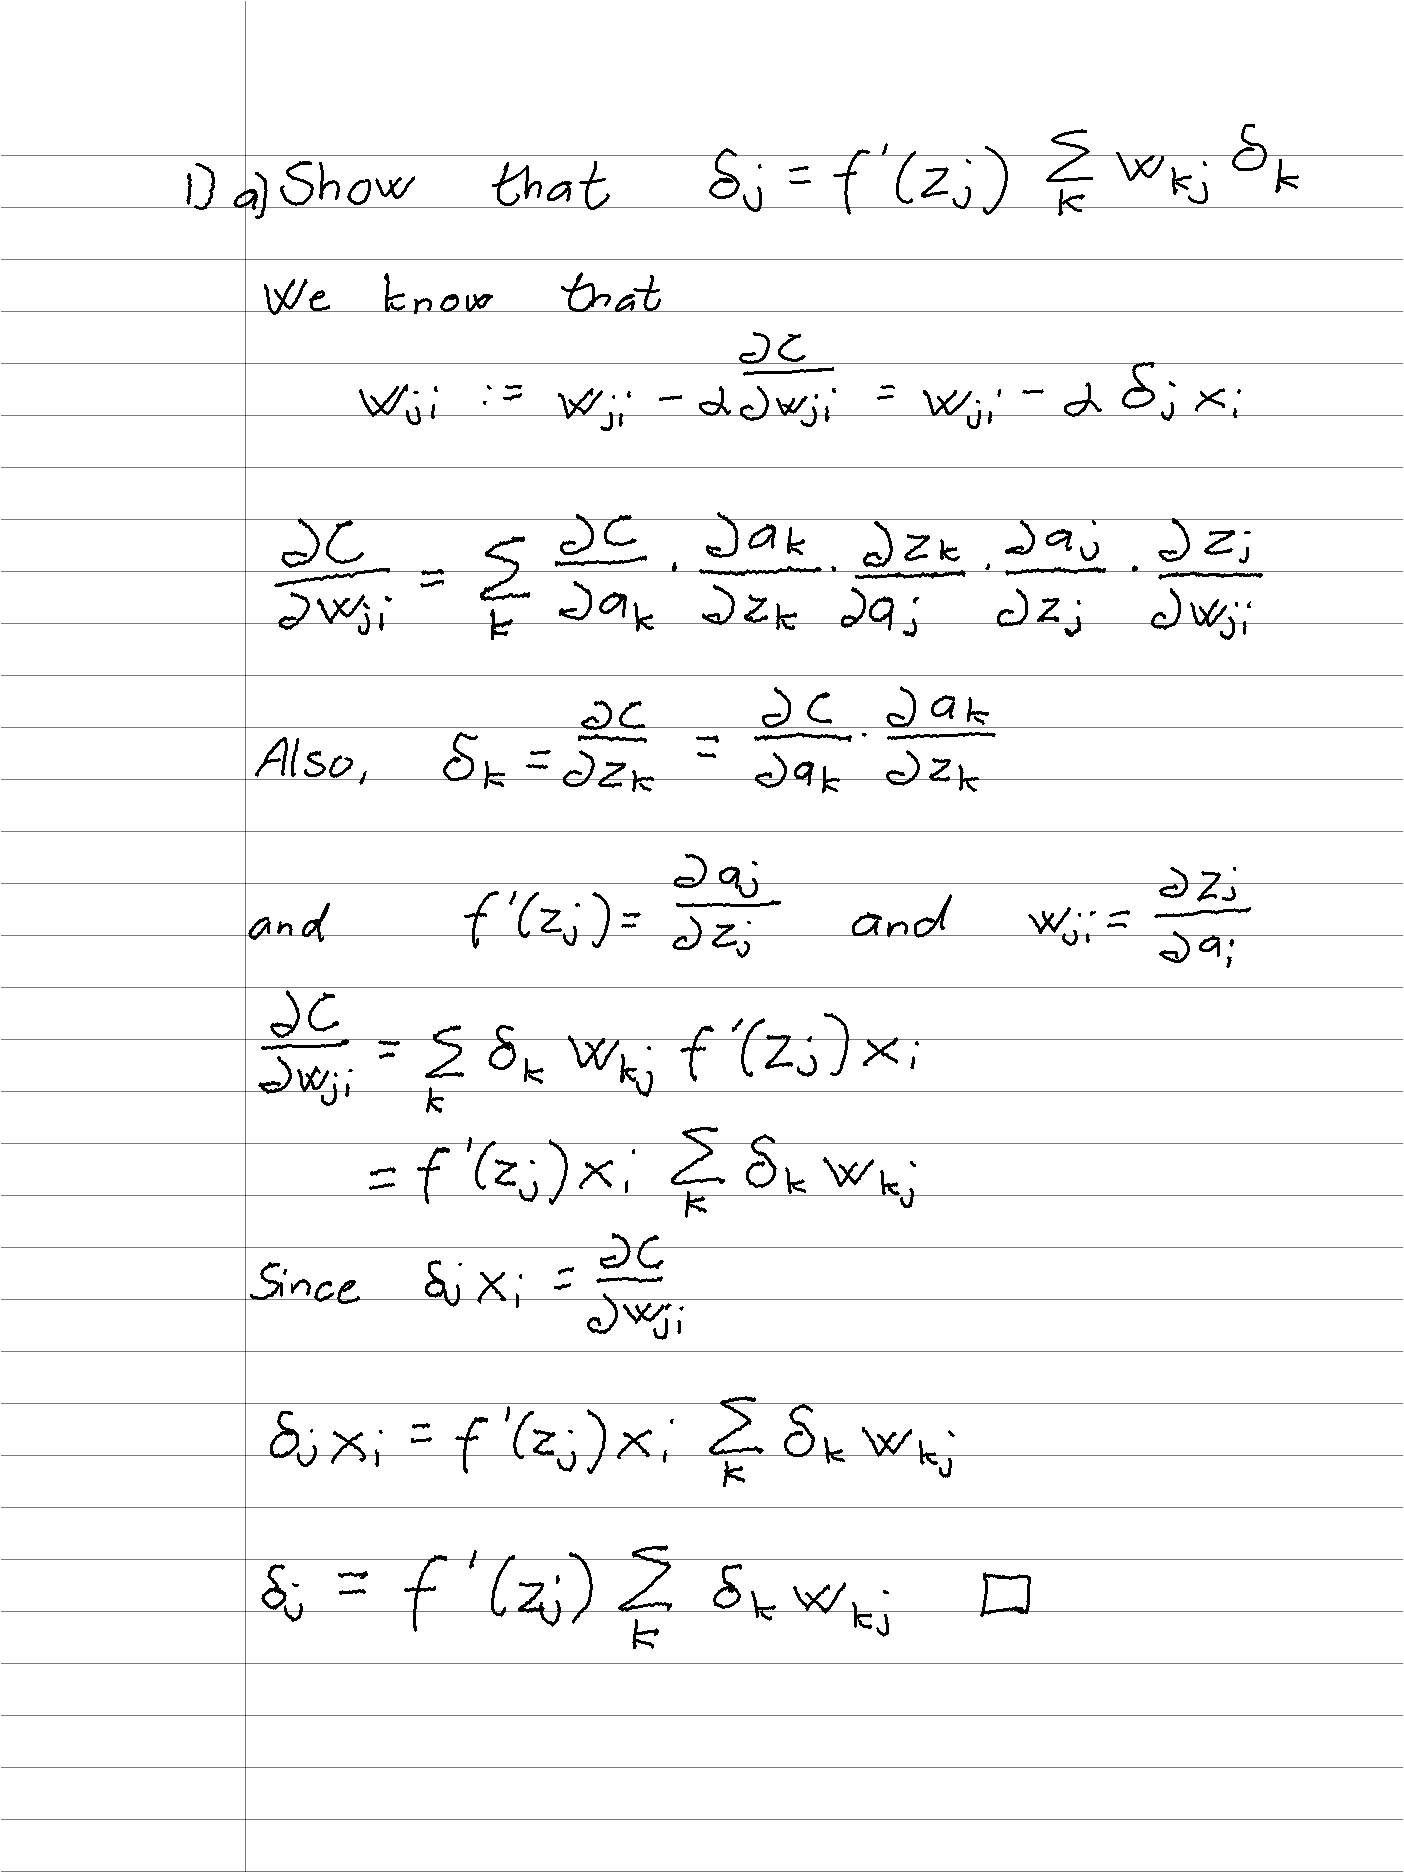 1) a) Show that δ_j = f'(z_j) Σ_k w_kj δ_k
We know that
w_ji := w_ji - α ∂C/∂w_ji = w_ji - α δ_j x_i
∂C/∂w_ji = Σ_k ∂C/∂a_k · ∂a_k/∂z_k · ∂z_k/∂a_j · ∂a_j/∂z_j · ∂z_j/∂w_ji
Also, δ_k = ∂C/∂z_k = ∂C/∂a_k · ∂a_k/∂z_k
and f'(z_j) = ∂a_j/∂z_j and w_ji = ∂z_j/∂a_i
∂C/∂w_ji = Σ_k δ_k w_kj f'(z_j) x_i
= f'(z_j) x_i Σ_k δ_k w_kj
Since δ_j x_i = ∂C/∂w_ji
δ_j x_i = f'(z_j) x_i Σ_k δ_k w_kj
δ_j = f'(z_j) Σ_k δ_k w_kj □